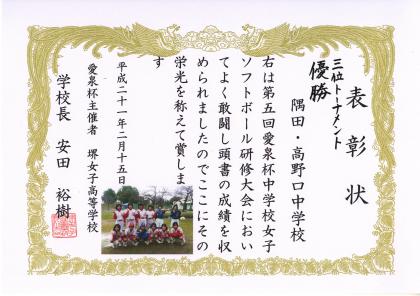 表彰状
三位トーナメント
優勝
隅田・高野口中学校
右は第五回愛泉杯中学校女子
ソフトボール研修大会におい
てよく敢闘し頭書の成績を収
められましたのでここにその
栄光を称えて賞しま
す
平成二十一年二月十五日
愛泉杯主催者 堺女子高等学校
学校長 安田 裕樹